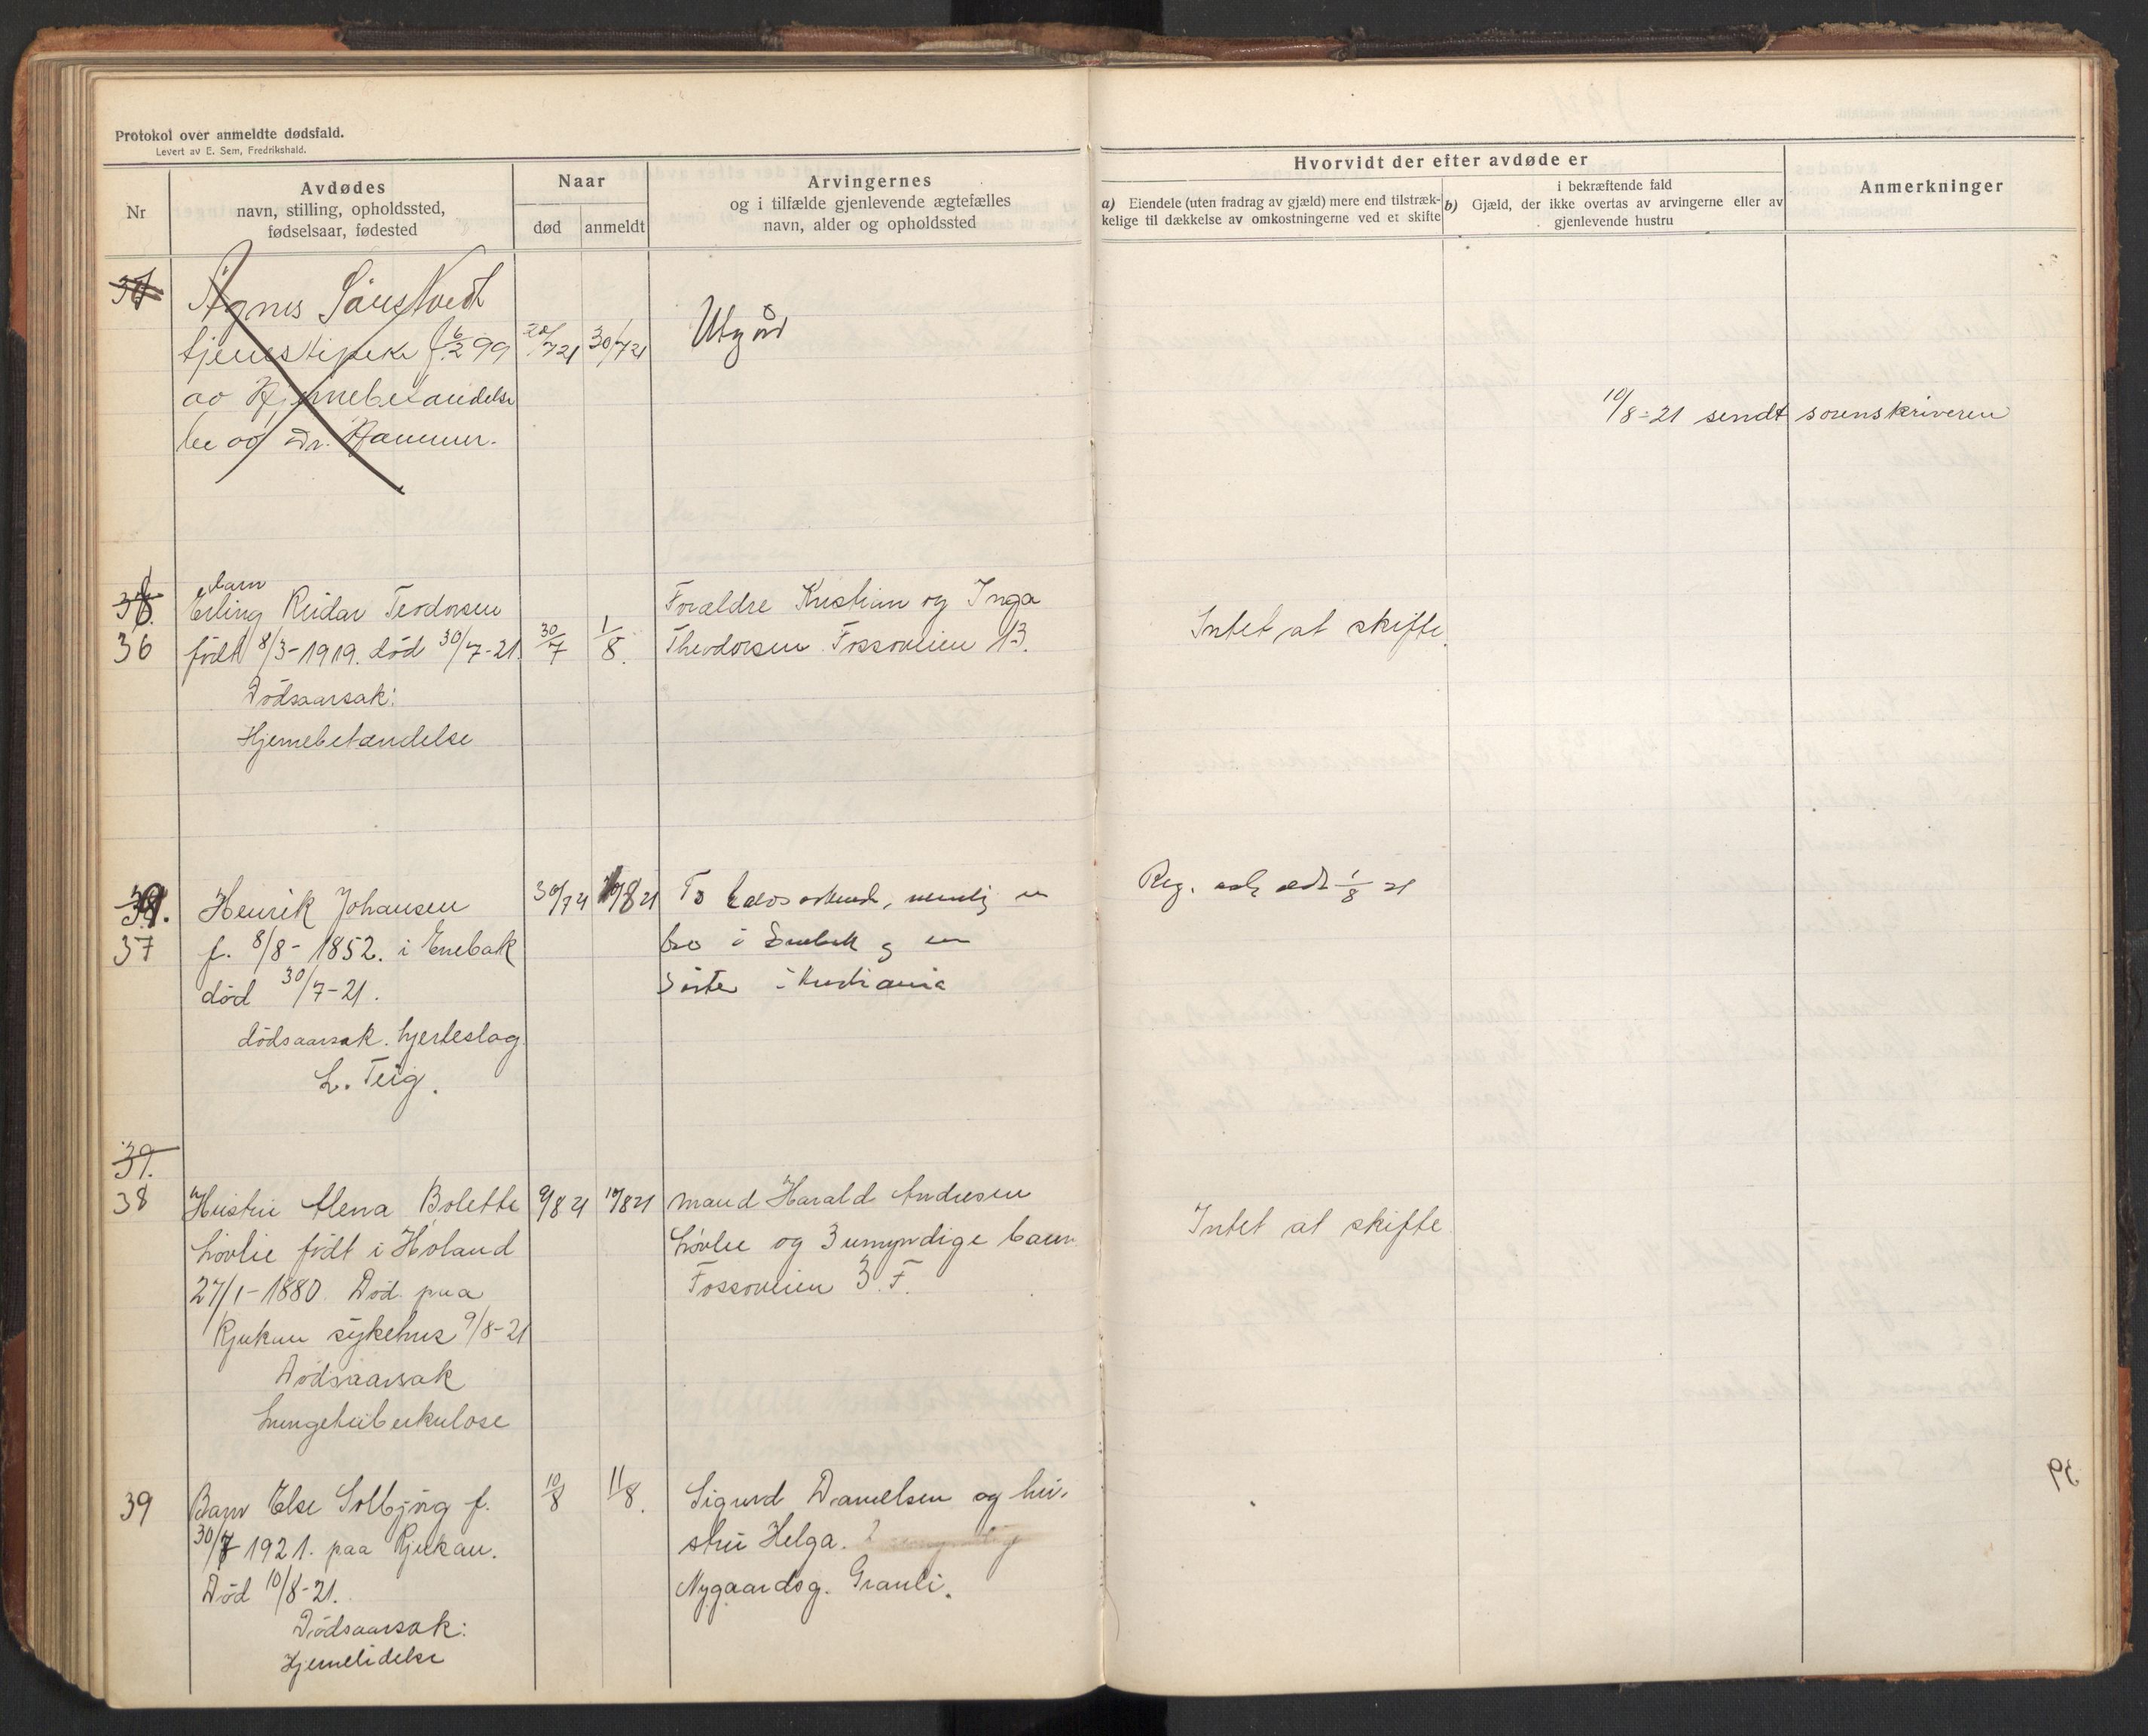 Protokol over anmeldte dødsfald.
Levert av E. Sem, Fredrikshald.
Nr
Avdødes
navn, stilling, opholdssted,
fødselsaar, fødested
Naar
død
anmeldt
Arvingernes
og i tilfælde gjenlevende ægtefælles
navn, alder og opholdssted
Hvorvidt der efter avdøde er
a) Eiendele (uten fradrag av gjæld) mere end tilstræk-
kelige til dækkelse av omkostningerne ved et skifte
i bekræftende fald
b) Gjæld, der ikke overtas av arvingerne eller av
gjenlevende hustru
Anmerkninger
37
Agnes
tjenestepike f. 6/2 99
20/7 21
30/7 21
Utgår
av Hjernebetændelse
Dr. Hammer.
10/8-21 sendt sorenskriveren
38.
36
barn
Erling Reidar Teodorsen
født 8/3-1919. død 30/7-21.
Dødsaarsak:
Hjernebetændelse
30/7
1/8.
Forældre Kristian og Inga
Theodorsen Fossoveien 13.
Intet at skifte.
37
Henrik Johansen
f. 8/8-1852. i Enebak
død 30/7-21.
dødsaarsak. hjerteslag
L. Teig.
30/7 21
8 21
To
bro i Enebak og en
søster i Kristiania
Reg. 1/8 21
39.
38
Hustru Alena Bolette
Løvlie født i Høland
27/1-1880. Død paa
Rjukan sykehus 9/8-21
Dødsaarsak
Lungetuberkulose
9/8 21
10/8 21
Mand Harald Andresen
Løvlie og 3 umyndige barn
Fossoveien 3. F.
Intet at skifte
39
Barn Else Solbjørg f.
30/7 1921. paa Rjukan.
Død 10/8-21.
Dødsaarsak:
Hjernelidelse
10/8
11/8.
Sigurd Danielsen og hu-
stru Helga.
Nygaardsg. Granli.